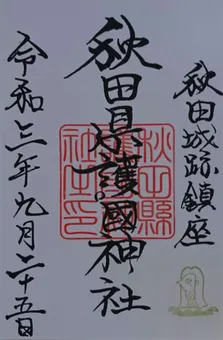 秋田城跡鎮座
秋田県護國神社
令和三年九月二十五日
秋田縣護國神社之印